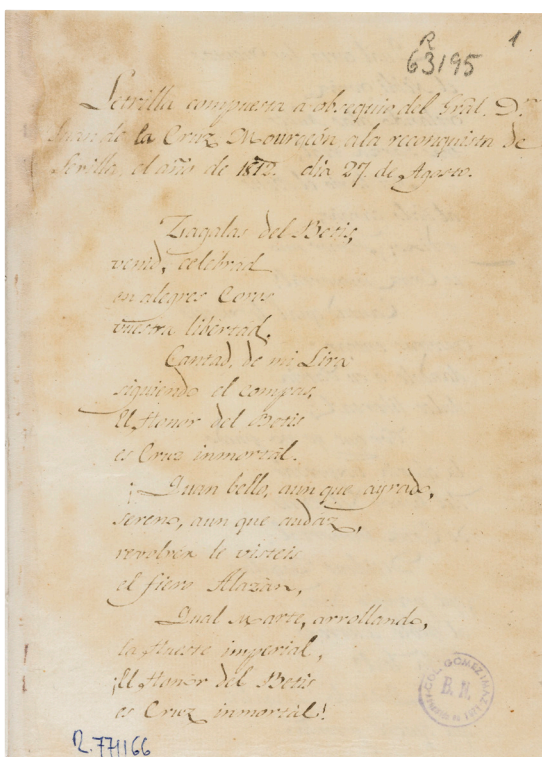 R
63195
1
Letrilla compuesta a obsequio del Gral. Dn.
Juan de la Cruz Mourgeón a la reconquista de
Sevilla, el año de 1812. dia 27. de Agosto.
Zagalas del Betis,
venid, celebrad
en alegres Coros
vuestra libertad.
Cantad, de mi Lira
siguiendo el compas,
El Honor del Betis
es Cruz inmortal.
¡Quan bello, aun que ayrado,
sereno, aun que audaz,
revolver le visteis
el fiero Alazan,
Qual Marte, arrollando,
la Hueste imperial,
¡El Honor del Betis
es Cruz inmortal!
GOMEZ IMAZ
B. N.
R. 771166